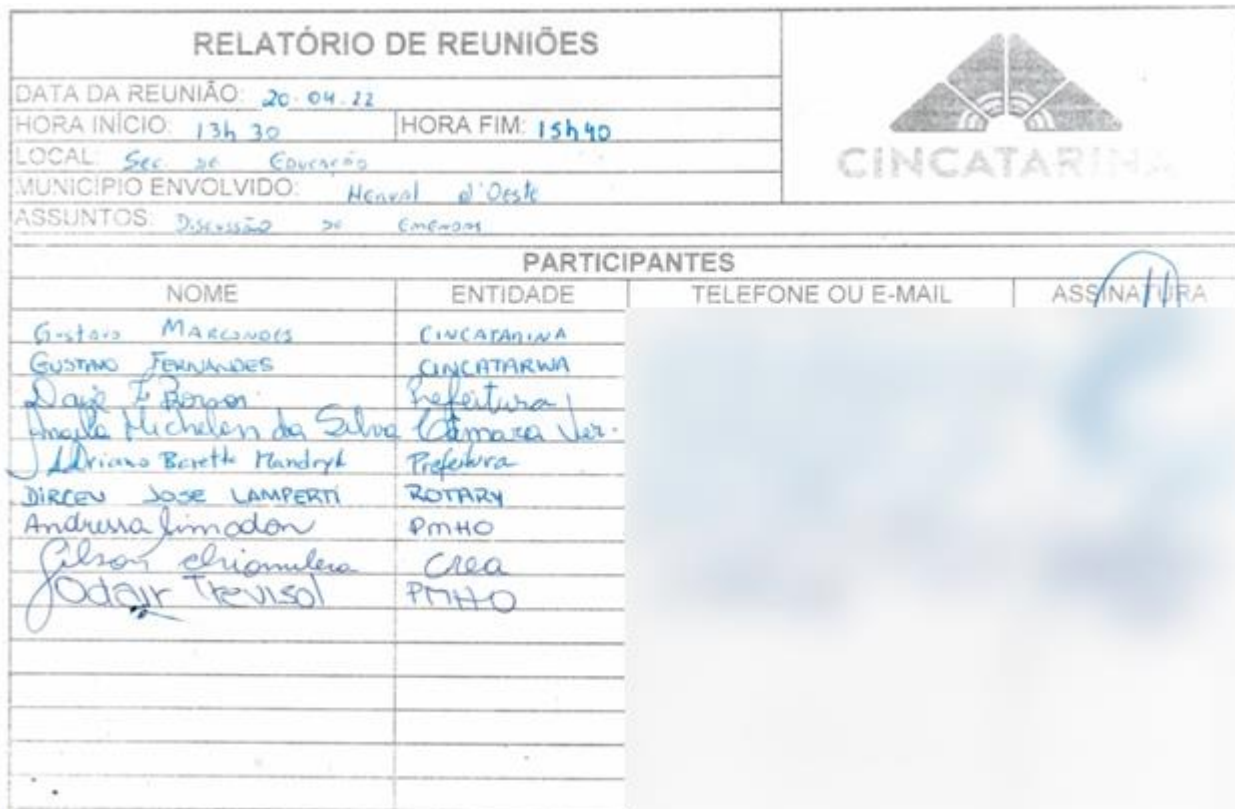 RELATÓRIO DE REUNIÕES
CINCATARINA
DATA DA REUNIÃO: 20.04.22
HORA INÍCIO: 13h30 HORA FIM: 15h40
LOCAL: Sec de Educação
MUNICÍPIO ENVOLVIDO: Herval d'Oeste
ASSUNTOS: Discussão de Emendas
PARTICIPANTES
NOME ENTIDADE TELEFONE OU E-MAIL ASSINATURA
Gustavo Marcondes CINCATARINA
GUSTAVO FERNANDES CINCATARINA
Prefeitura
Angela Michelon da Silva Câmara Ver.
Adriano Baretta Mandryk Prefeitura
DIRCEU JOSE LAMPERTI ROTARY
Andressa PMHO
Gilson Chiamulera Crea
Odair Trevisol PMHO